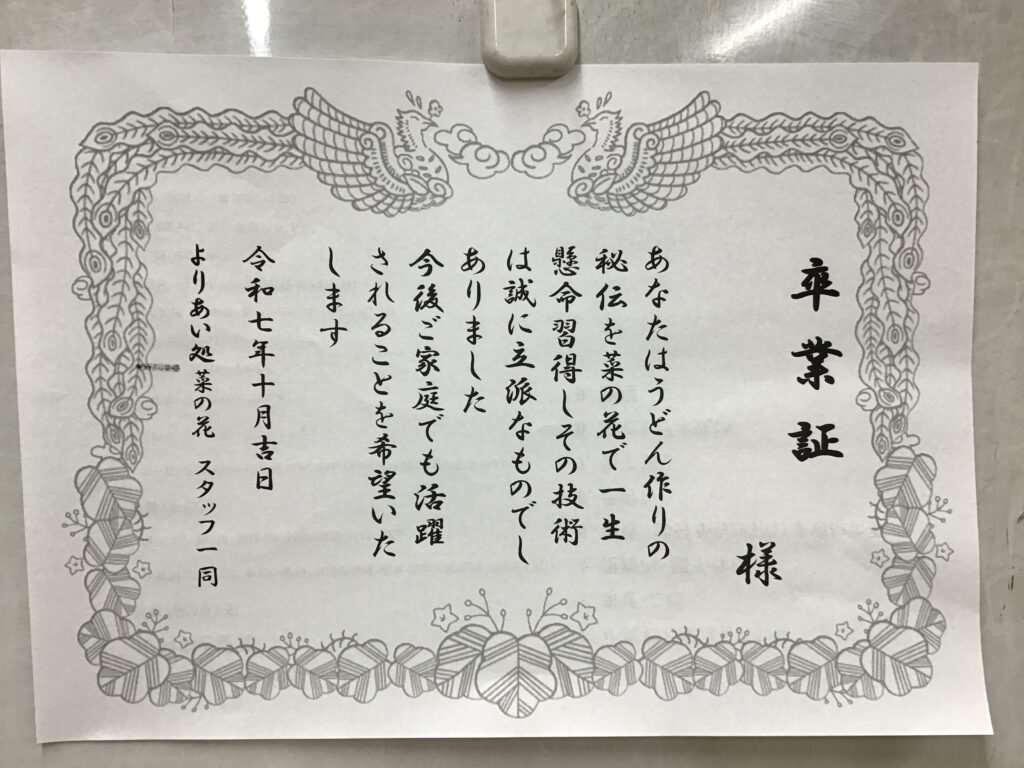 卒業証
様
あなたはうどん作りの
秘伝を菜の花で一生
懸命習得しその技術
は誠に立派なものでし
ありました
今後ご家庭でも活躍
されることを希望いた
します
令和七年十月吉日
よりあい処菜の花 スタッフ一同